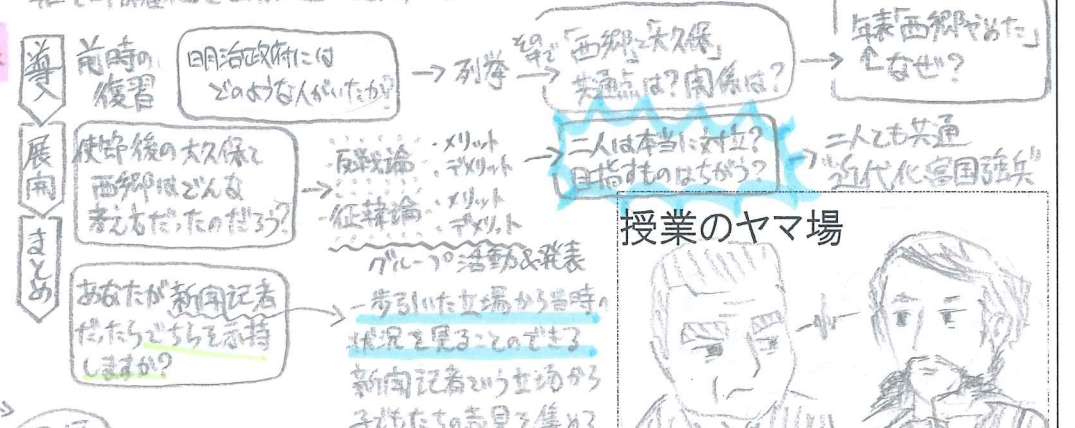 導入
前時の
復習
明治政府には
どのような人がいたか?
→列挙
その
中で
「西郷と大久保」
共通点は?関係は?
年表「西郷やめた」
↑なぜ?
展開
使節後の大久保と
西郷はどんな
考えもだったのだろう?
反戦論
・メリット
・デメリット
征韓論
・メリット
・デメリット
グループ活動&発表
二人は本当に対立?
目指すものはちがう?
二人とも共通
"近代化・富国強兵"
授業のヤマ場
まとめ
あなたが新聞記者
だったらどちらを支持
しますか?
一歩引いた立場から当時の
状況を見ることのできる
新聞記者という立場から
子どもたちの意見を集める